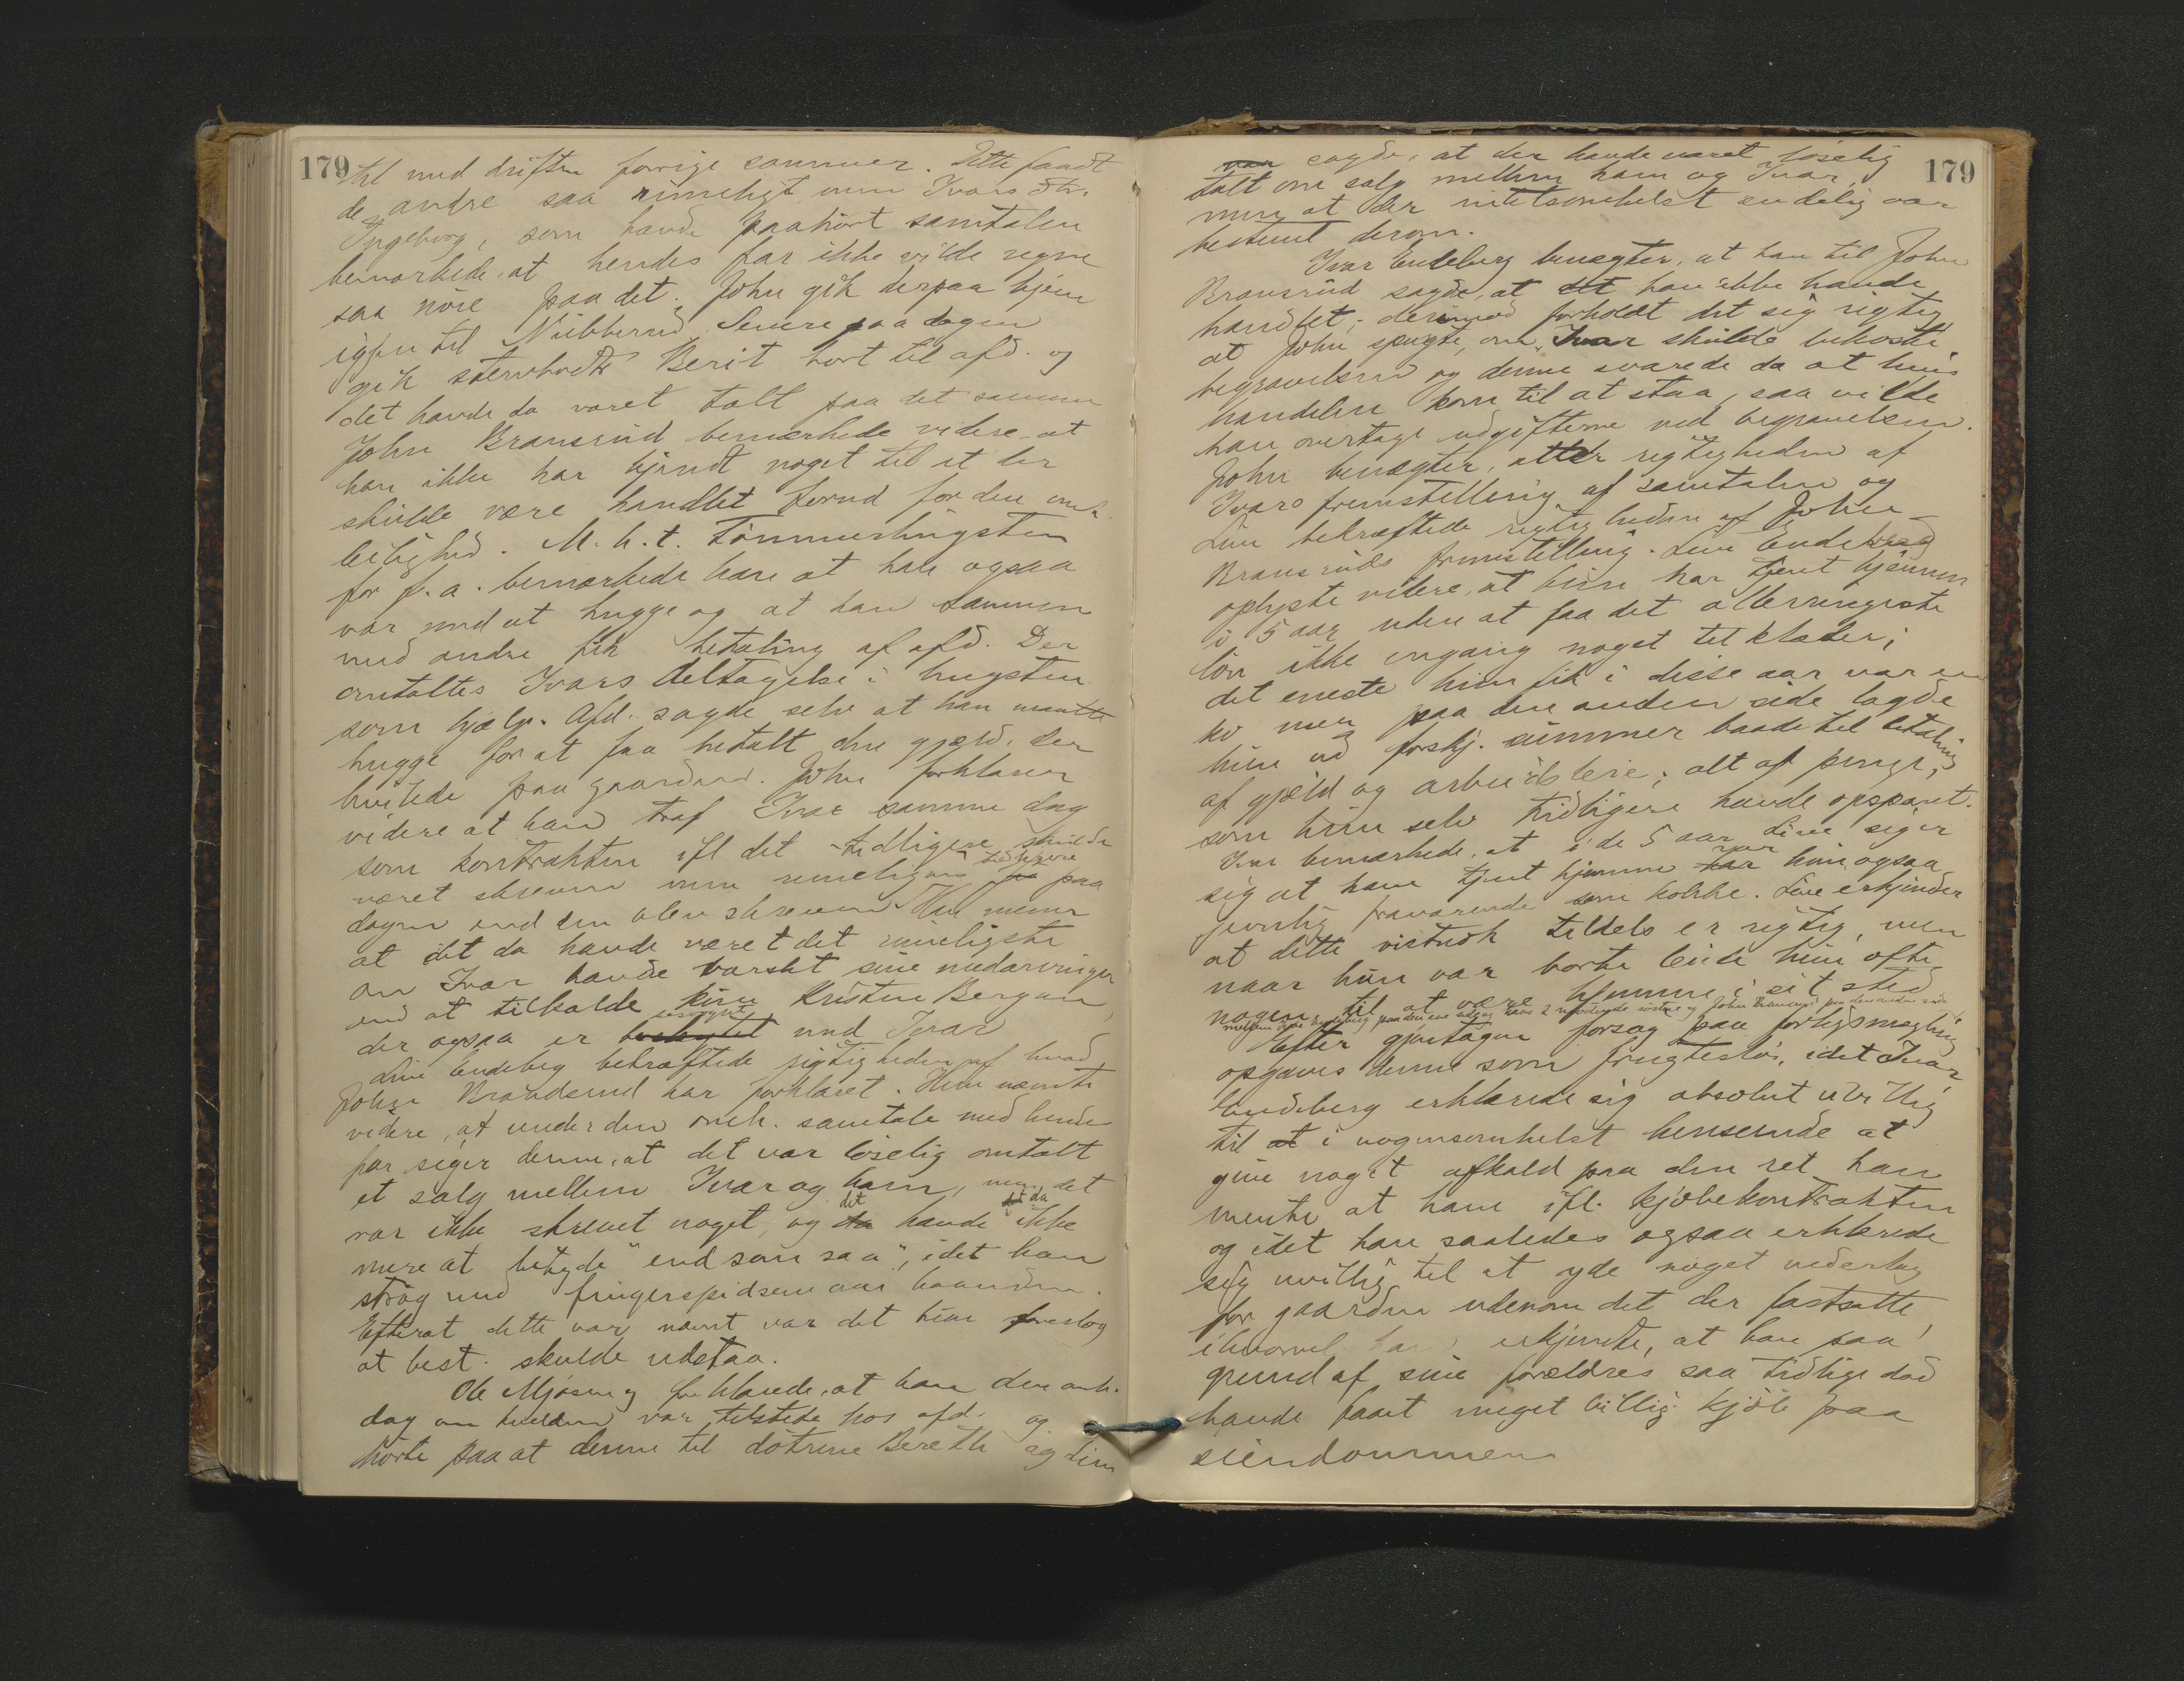 179
til med driften forrige sommer. Dette fandt
de andre saa rimeligt, men Ivars dtr.
Ingeborg, som havde paahört samtalen
bemærkede, at hendes far ikke vilde regne
saa nöie paa det. John gik derpaa hjem
igjen til Nubberud. Senere paa dagen
gik Berit bort til afd. og
det havde da været talt paa det samme
John Bransrud bemærkede videre at
han ikke har kjendt noget til at der
skulde være handlet forud for den omh.
leilighed. M. h. t. Tömmerhugsten
for f. a. bemærkede han at han ogsaa
var med at hugge og at han sammen
med andre fik betaling af afd. Der
omtaltes Ivars deltagelse i hugsten
som hjælp. Afd. sagde selv at han maatte
hugge for at faa betalt den gjæld, der
hvilede paa gaarden. John forklarer
videre at han traf Ivar samme dag
som kontrakten ifl det tidligere skulde
været skreven men rimeligvis tidligere paa
dagen end den blev skreven. Han mener
at det da havde været det rimeligste
om Ivar havde varslet sine medarvinger
end at tilkalde Kristen Bergum,
der ogsaa er besvogret med Ivar
Live Endeberg bekræftede rigtigheden af hvad
John Brandsrud har forklaret. Hun nævnte
videre, at under den omh. samtale med hendes
far siger denne, at det var löselig omtalt
et salg mellem Ivar og ham, men det
var ikke skrevet noget, og det havde da ikke
mere at betyde "end som saa", idet han
strög med fingerspidsene over haanden.
Efterat dette var nævnt var det hun foreslog
at best. skulde udstaa.
Ole Mjösen forklarede, at han den omh.
dag om kvelden var tilstede hos afd. og
hörte paa at denne til dötrene Bereth og Live
179
sagde, at der havde været löselig
talt om salg mellem ham og Ivar,
men at der intetsomhelst endelig var
bestemt derom.
Ivar Endeberg benægter, at han til John
Bransrud sagde, at han ikke havde
handlet; derimod forholdt det sig rigtig
at John spurgte, om Ivar skulde bekoste
begravelsen og denne svarede da at hvis
handelen kom til at staa, saa vilde
han overtage udgifterne ved begravelsen.
John benægter, atter rigtigheden af
Ivars fremstelling af samtalen og
Live bekræftede rigtigheden af John
Bransruds fremstelling. Live Endeberg
oplyste videre, at hun har tjent hjemme
i 5 aar uden at faa det allerringeste
lön ikke engang noget til klæder;
det eneste hun fik i disse aar var en
ko men paa den anden side lagde
hun ud forskj. summer baade til betaling
af gjæld og arbeidsleie; alt af penge,
som hun selv tidligere havde opsparet.
Ivar bemærkede, at i de 5 aar Live siger
sig at have tjent hjemme var hun ogsaa
jevnlig fraværende som kokke. Live erkjender
at dette vistnok tildels er rigtig, men
naar hun var borte leiede hun ofte
nogen til at være hjemme i sit sted
mellem Ivar Endeberg paa den ene side og hans 2 söstre og John Bransrud paa den anden side
Efter gjentagne forsög paa forligsmægling
opgaves denne som frugteslös, idet Ivar
Endeberg erklærede sig absolut uvillig
til i nogensomhelst henseende at
give noget afkald paa den ret han
mente at have ifl. kjöbekontrakten
og idet han saaledes ogsaa erklærede
sig uvillig til at yde noget vederlag
for gaarden udenom det der fastsatte,
ihvorvel han erkjendte, at han paa
grund af sine forældres saa tidlige död
havde faaet meget billig kjöb paa
eiendommen